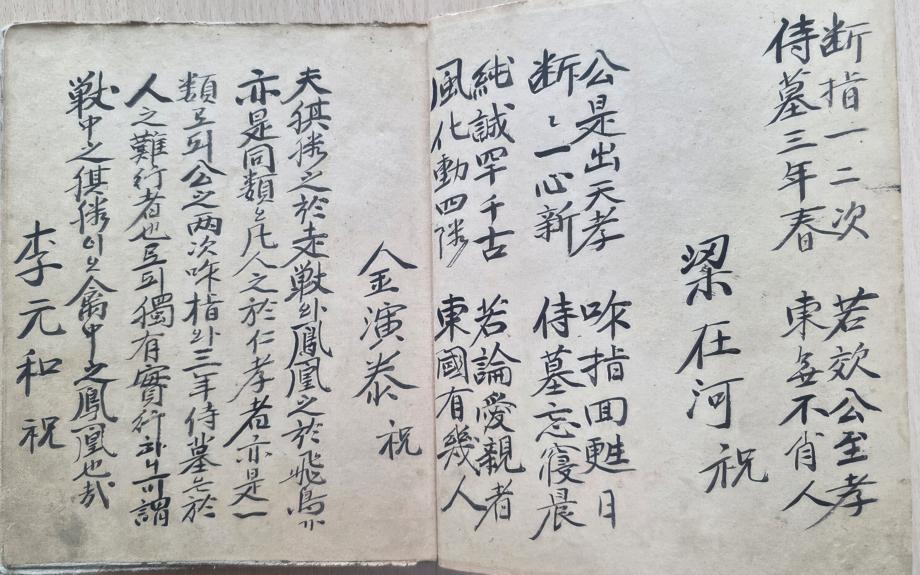 断指一二次 若效公至孝
侍墓三年春 東無不肖人
梁在河 祝
公是出天孝 咋指回甦日
断〻一心新 侍墓忘寢晨
純誠罕千古 若論愛親者
風化動四隣 東國有幾人
金演泰 祝
夫猉獜之於走獸와鳳凰之於飛鳥
亦是同類오凡人之於仁孝者亦是一
類로되公之两次咋指와三年侍墓는於
人之難行者也로되獨有實行하니可謂
獸中之猉獜이오禽中之鳳凰也哉
李元和 祝